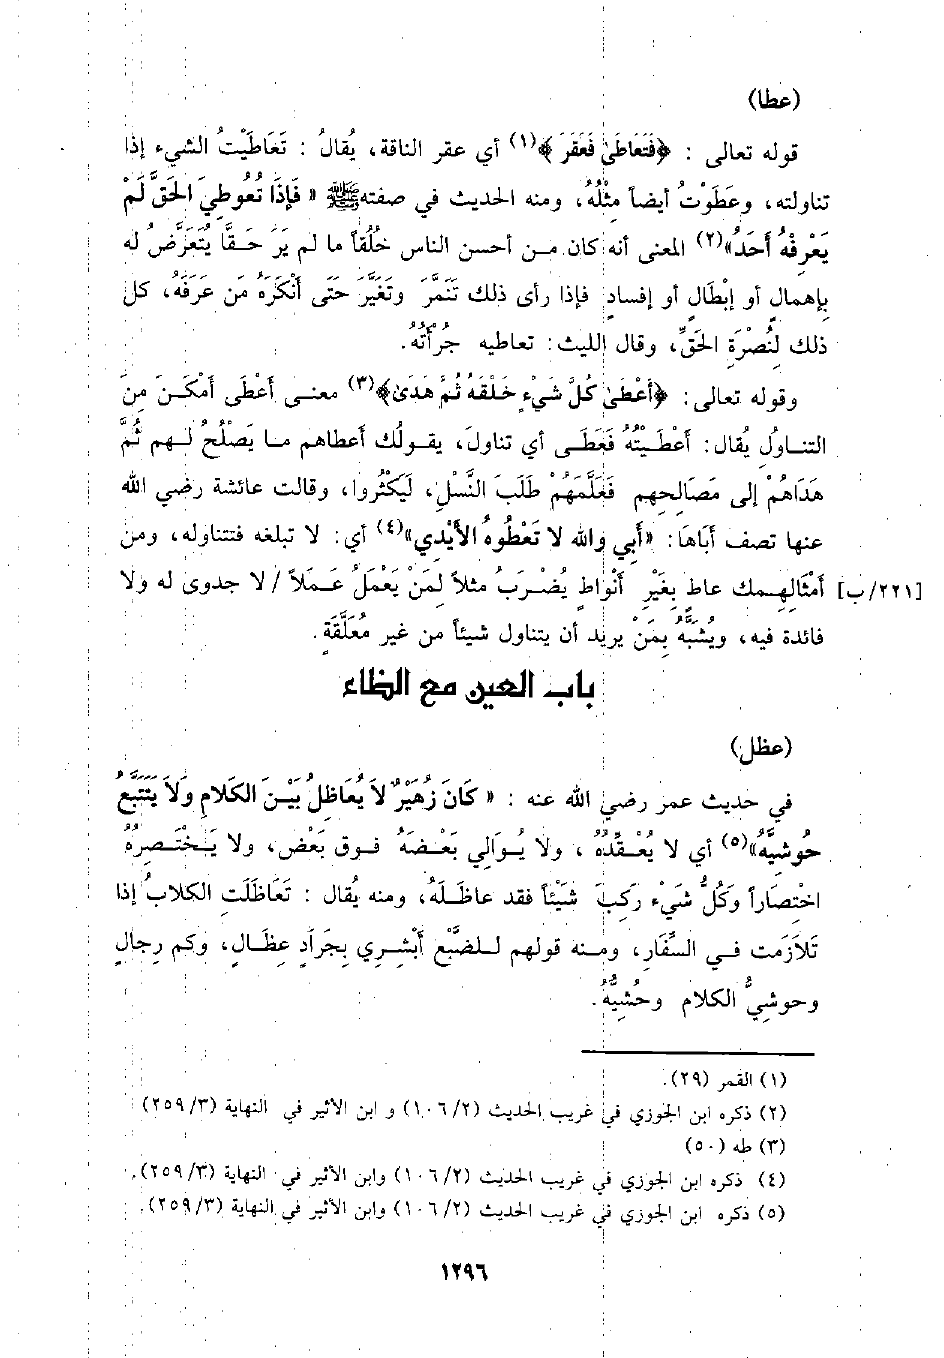 (عطا)
قوله تعالى : ﴿فَتَعَاطَىٰ فَعَقَرَ﴾(١) أي عقر الناقة، يُقالُ : تَعَاطَيْتُ الشيء إذا
تناولته، وعَطَوْتُ أيضاً مثْلُهُ، ومنه الحديث في صفته ﷺ « فَإِذَا تُعُوطِيَ الحَقَّ لَمْ
يَعْرِفْهُ أَحَدُ»(٢) المعنى أنه كان من أحسن الناس خُلُقاً ما لم يَرَ حَقًّا يُتَعَرَّضُ له
بِإهمالٍ أو إبْطَالٍ أو إفسادٍ فإذا رأى ذلك تَنَمَّرَ وتَغَيَّرَ حتَى أَنْكَرَهُ من عَرَفَهُ، كل
ذلك لنُصْرَةِ الحَقِّ، وقال الليث: تعاطيه جُرْأَتُهُ.
وقوله تعالى: ﴿أَعْطَىٰ كُلَّ شَيْءٍ خَلْقَهُ ثُمَّ هَدَىٰ﴾(٣) معنى أَعْطَى أَمْكَنَ مِنَ
التناوُلِ يُقال: أَعْطَيْتُهُ فَعَطَى أي تناولَ، يقولُك أعطاهم ما يَصْلُحُ لهم ثُمَّ
هَدَاهُمْ إلى مَصَالِحِهِم فَعَلَّمَهُمْ طَلَبَ النَّسْلِ، لَيَكْثُروا، وقالت عائشة رضي الله
عنها تصف أَبَاهَا: «أَبِي والله لا تَعْطُوهُ الأَيْدِي»(٤) أي: لا تبلغه فتتناوله، ومن
أَمْثَالِهِمك عاطٍ بِغَيْرِ أَنْواطٍ يُضْرَبُ مثلاً لِمَنْ يَعْمَلُ عَمَلاً / لا جدوى له ولا [٢٢١/ب]
فائدة فيه، ويُشَبَّهُ بِمَنْ يريد أن يتناول شيئاً من غير مُعَلَّقَةٍ.
باب العين مع الظاء
(عظل)
في حديث عمر رضي الله عنه : « كَانَ زُهَيْرٌ لاَ يُعَاظِلُ بَيْنَ الكَلامِ ولاَ يَتَتَبَّعُ
حُوشِيَّهُ»(٥) أي لا يُعْقِّدُهُ ، ولا يُوَالِي بَعْضَهُ فوق بَعْض، ولا يَخْتَصِرُهُ
اخْتِصَاراً وَكُلُّ شَيْء رَكِبَ شَيْئاً فقد عاظَلَهُ، ومنه يُقال : تَعَاظَلَت الكلابُ إذا
تَلاَزَمت في السِّفَارِ، ومنه قولهم للضَّبْع أَبْشِرِي بِجَرَادِ عِظَالٍ، وكم رِجالٍ
وحوشِيُّ الكلام وحُشِيَّهُ.
(١) القمر (٢٩).
(٢) ذكره ابن الجوزي في غريب الحديث (١٠٦/٢) و ابن الأثير في النهاية (٢٥٩/٣)
(٣) طه (٥٠)
(٤) ذكره ابن الجوزي في غريب الحديث (١٠٦/٢) وابن الأثير في النهاية (٢٥٩/٣).
(٥) ذكره ابن الجوزي في غريب الحديث (١٠٦/٢) وابن الأثير في النهاية (٢٥٩/٣).
١٢٩٦